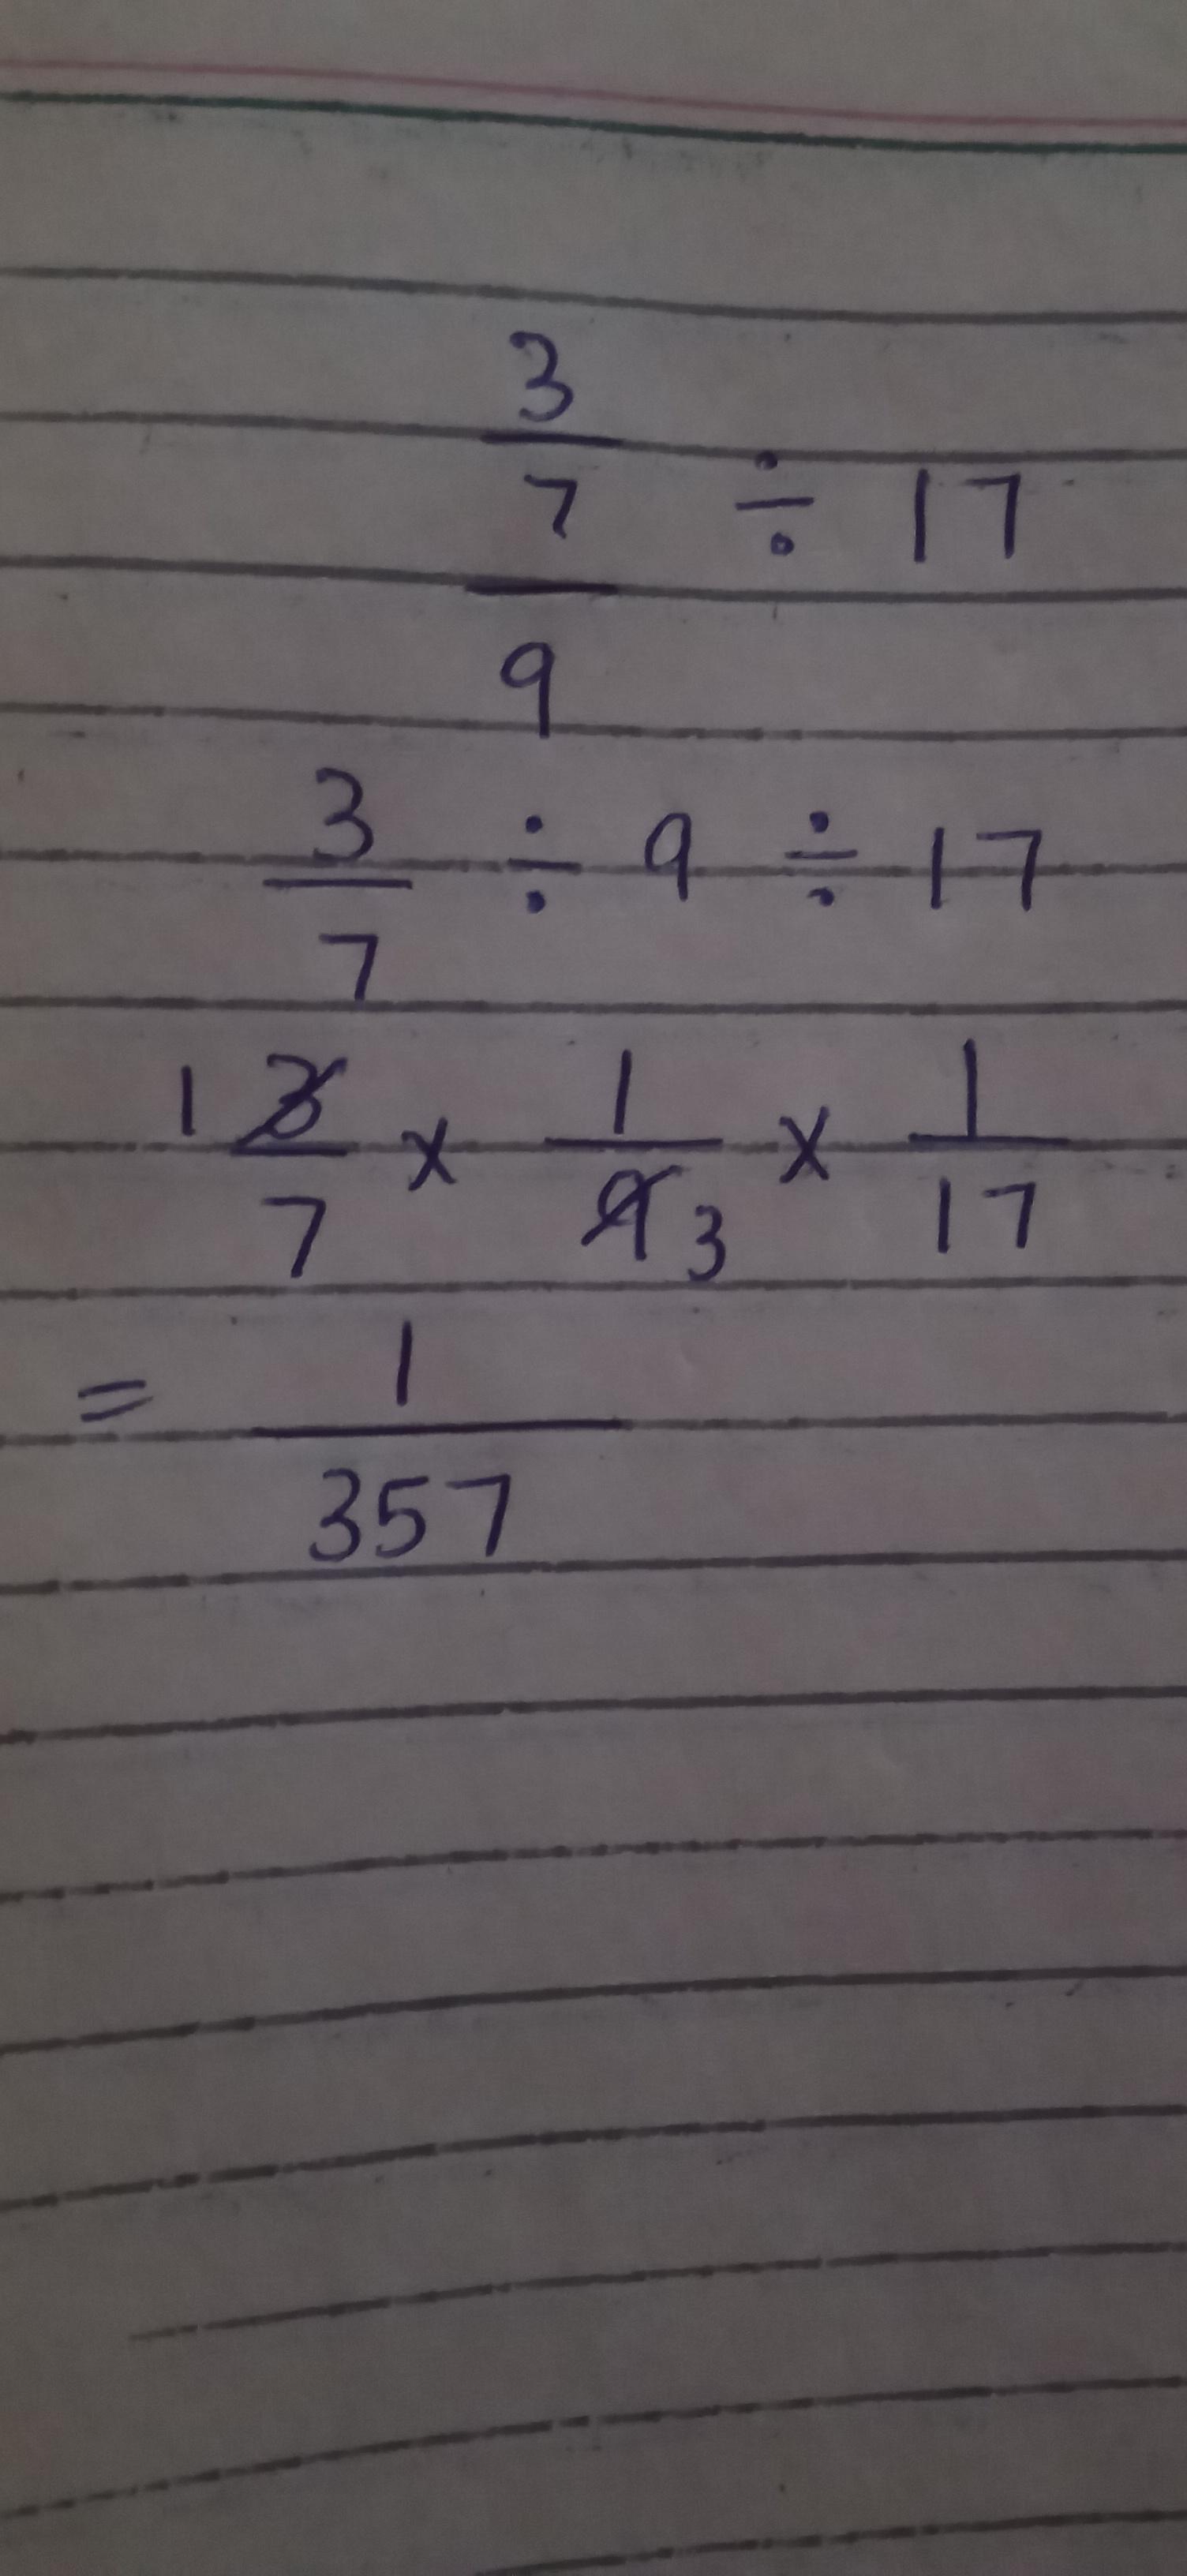 3
7 ÷ 17
9
3/7 ÷ 9 ÷ 17
1 3/7 × 1/9 3 × 1/17
= 1/357